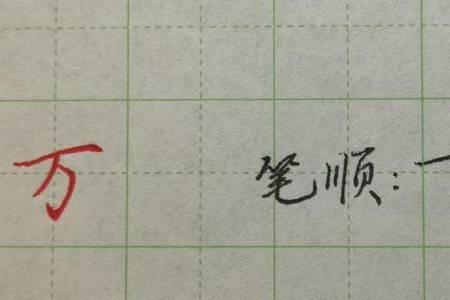 万 笔顺:一